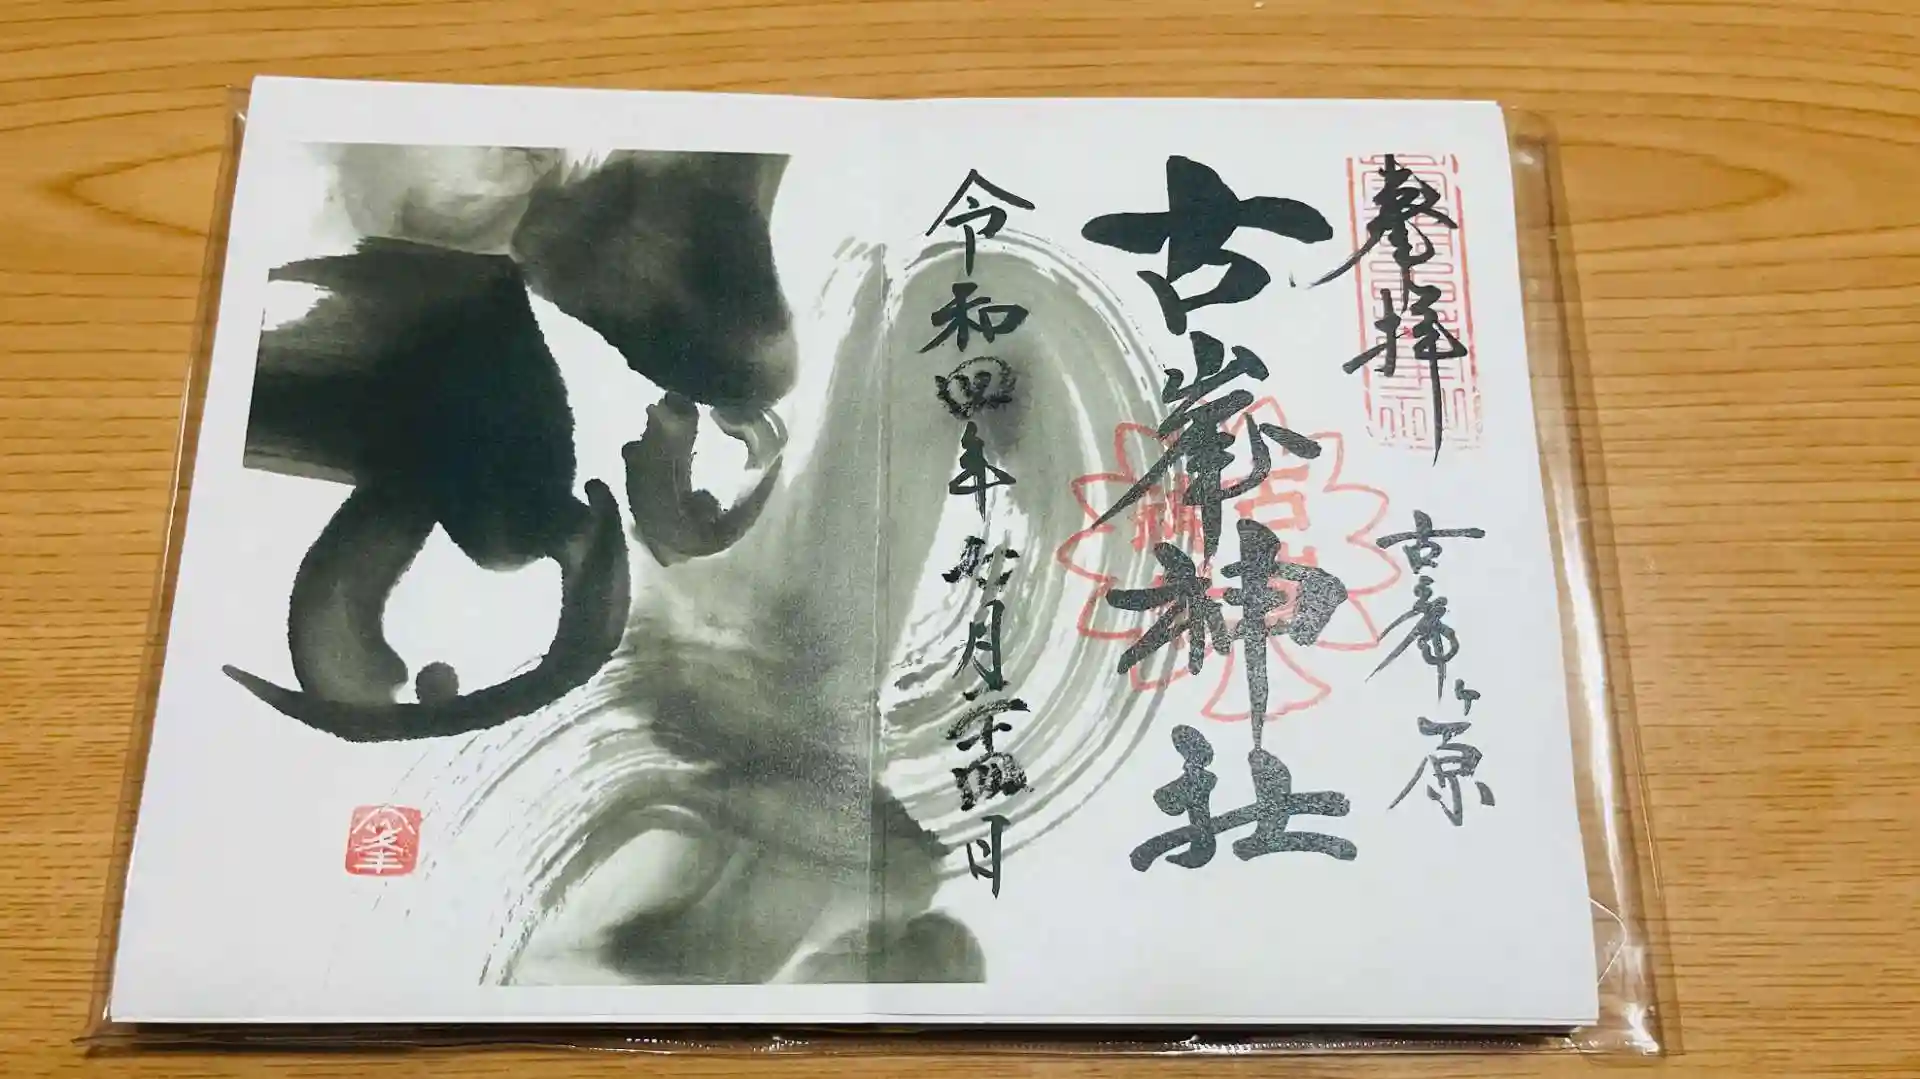 奉拝
古峯ヶ原
古峯神社
令和四年七月二十四日
峯